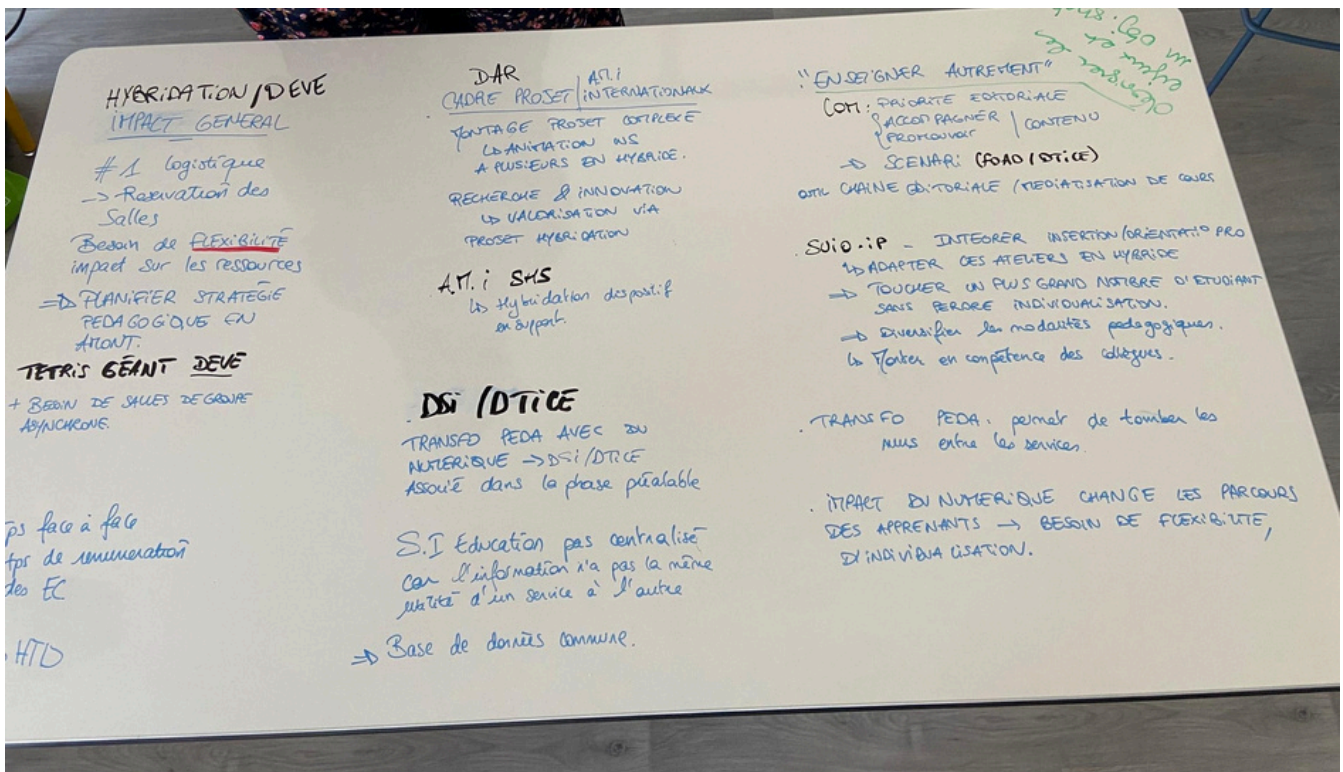 HYBRIDATION/DEVE
IMPACT GENERAL
#1 logistique
-> Reservation des
Salles
Besoin de FLEXIBILITÉ
impact sur les ressources
=> PLANIFIER STRATÉGIE
PEDAGOGIQUE EN
AMONT.
TETRIS GÉANT DEVE
+ BESOIN DE SALLES DE GROUPE
ASYNCHRONE.
ps face à face
tps de remuneration
des EC
HTD
DAR
CADRE PROJET | AMI INTERNATIONAUX
MONTAGE PROJET COMPLEXE
↳ ANIMATION
A PLUSIEURS EN HYBRIDE.
RECHERCHE & INNOVATION
↳ VALORISATION VIA
PROJET HYBRIDATION
A.M.i SHS
↳ Hybridation dispositif
en support.
. DSi / DTiCE
TRANSFO PEDA AVEC DU
NUMERIQUE -> DSi/DTICE
Associé dans la phase préalable
S.I Education pas centralisé
car l'information n'a pas la même
utilité d'un service à l'autre
=> Base de données commune.
"ENSEIGNER AUTREMENT"
COM : PRIORITE EDITORIALE
ACCOMPAGNER
PROMOUVOIR | CONTENU
-> SCENARi (FOAD/DTICE)
OUTIL CHAINE EDITORIALE / MEDIATISATION DE COURS
. SUiO-iP - INTEGRER INSERTION/ORIENTATIO PRO
↳ ADAPTER CES ATELIERS EN HYBRIDE
=> TOUCHER UN PLUS GRAND NOMBRE D'ETUDIANT
SANS PERDRE INDIVIDUALISATION.
=> Diversifier les modalités pedagogiques.
↳ Monter en compétence des collègues.
. TRANSFO PEDA. permet de tomber les
murs entre les services.
. IMPACT DU NUMERIQUE CHANGE LES PARCOURS
DES APPRENANTS -> BESOIN DE FLEXIBILITE,
D'INDIVIDUALISATION.
les
enjeux et
un Obj.